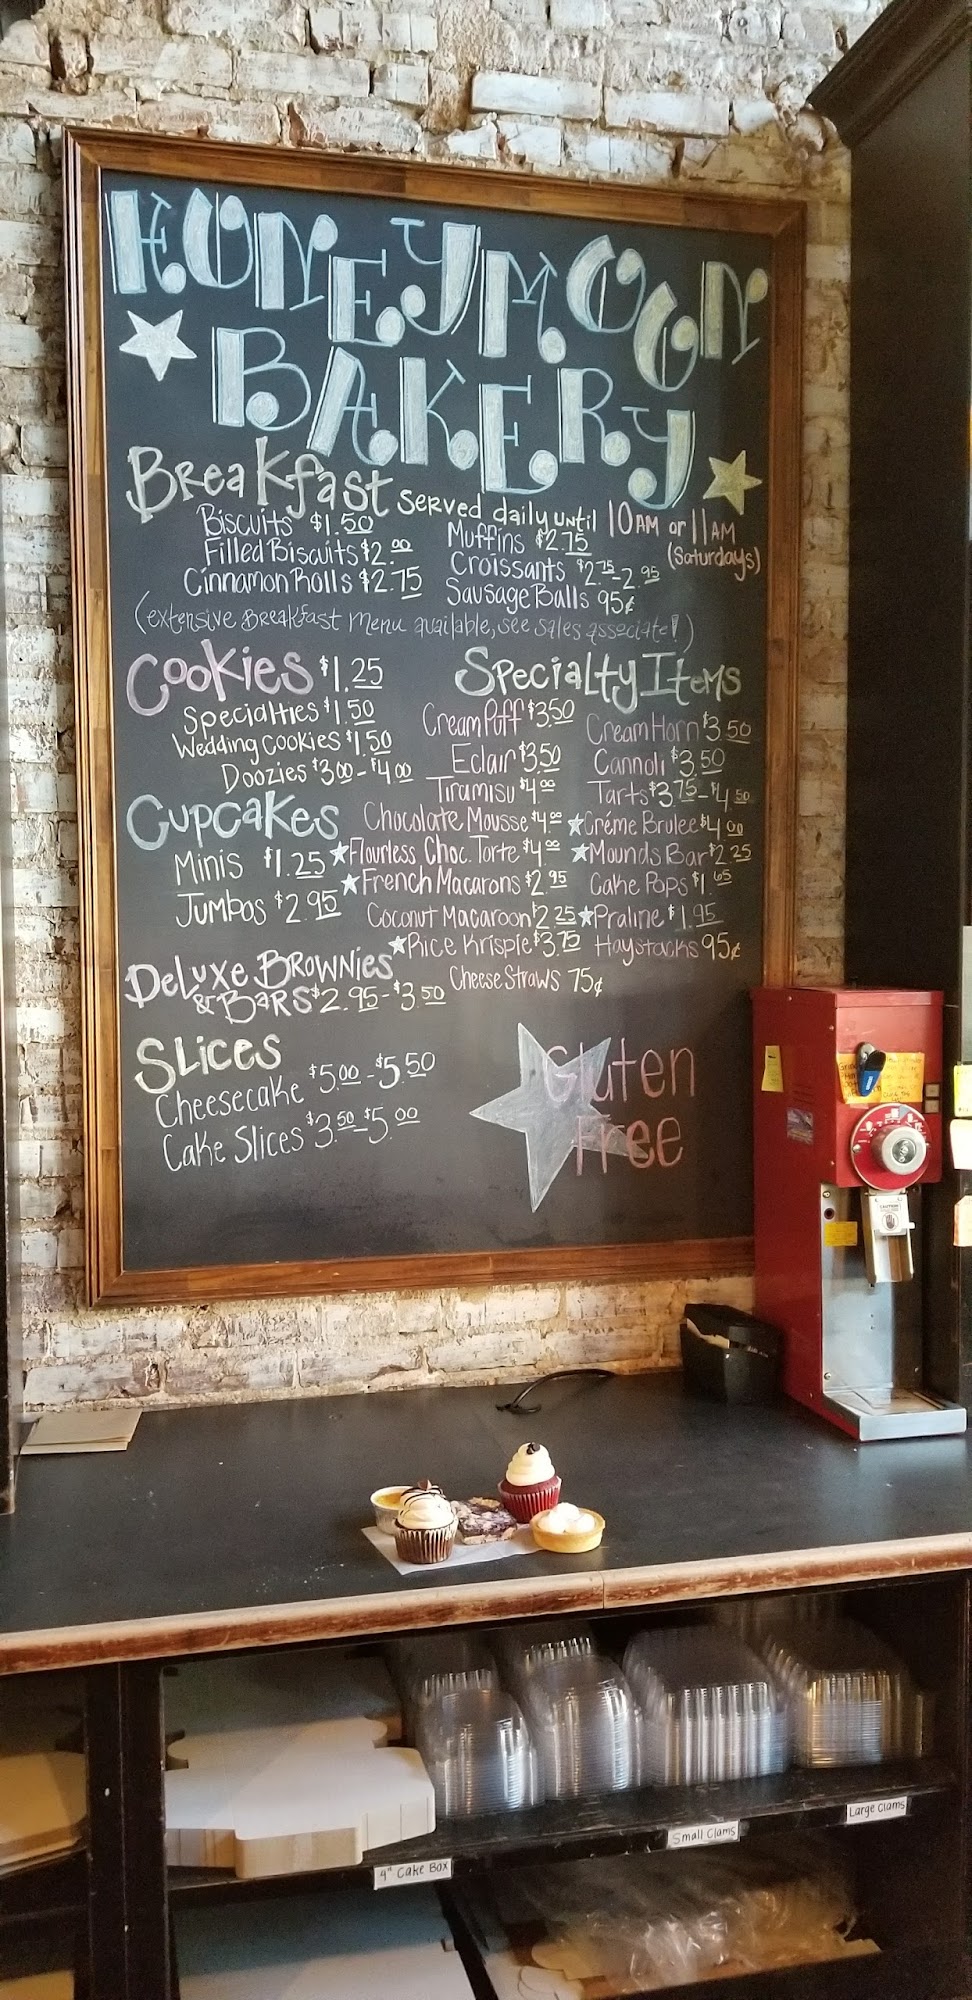 HONEYMOON
BAKERY
Breakfast served daily until 10AM or 11AM
(Saturdays)
Biscuits $1.50
Filled Biscuits $2.00
Cinnamon Rolls $2.75
Muffins $2.75
Croissants $2.75-2.95
Sausage Balls 95¢
(extensive Breakfast menu available, see sales associate!)
Cookies $1.25
Specialties $1.50
Wedding Cookies $1.50
Doozies $3.00-$4.00
Cupcakes
Minis $1.25
Jumbos $2.95
Deluxe Brownies
& Bars $2.95-$3.50
Slices
Cheesecake $5.00-$5.50
Cake Slices $3.50-$5.00
Specialty Items
Cream Puff $3.50
Cream Horn $3.50
Eclair $3.50
Cannoli $3.50
Tiramisu $4.00
Tarts $3.75-$4.50
Chocolate Mousse $4.00
★Créme Brulee $4.00
★Flourless Choc. Torte $4.00
★Mounds Bar $2.25
★French Macarons $2.95
Cake Pops $1.65
Coconut Macaroon $2.25
★Praline $1.95
★Rice Krispie $3.75
Haystacks 95¢
Cheese Straws 75¢
Gluten
Free
4" Cake Box
Small Clams
Large Clams